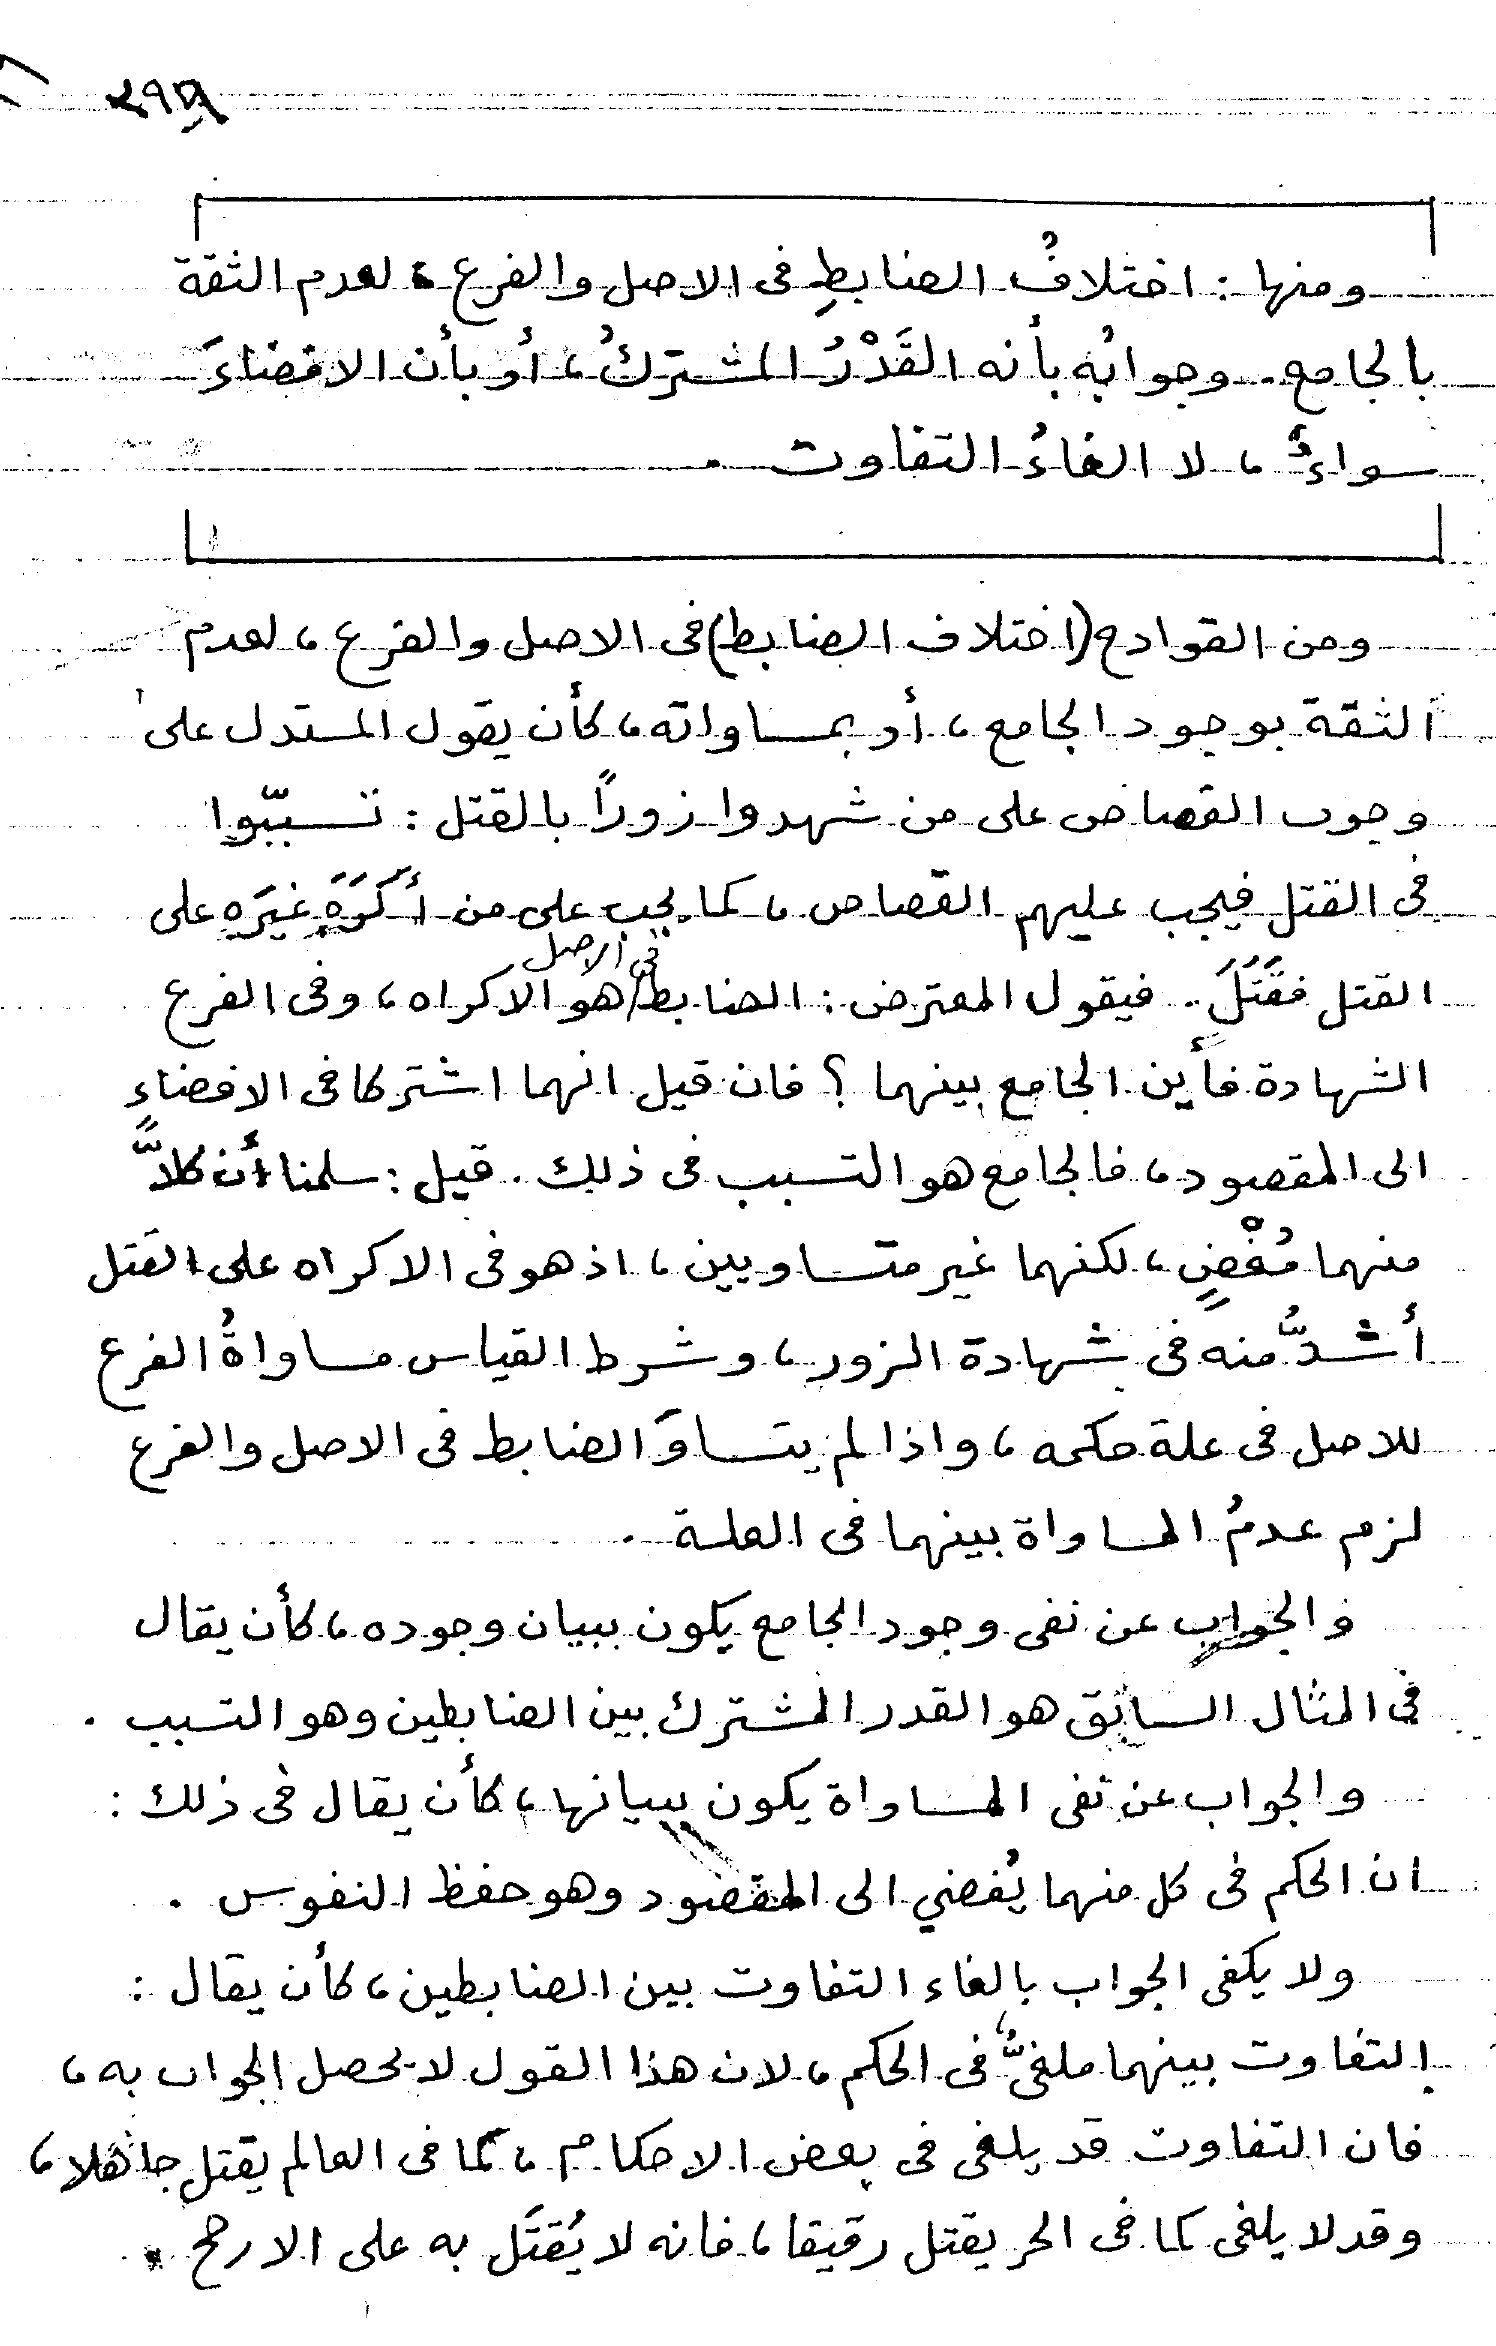 ومنها : اختلافُ الضابطِ فى الاصل والفرع ، لعدم الثقة
بالجامع . وجوابُه بأنه القَدْرُ المشتركُ ، أو بأن الافضاءَ
سواءٌ ، لا الغاءُ التفاوت .
ومن القوادح (اختلاف الضابط) فى الاصل والفرع ، لعدم
الثقة بوجود الجامع ، أو بمساواته ، كأن يقول المستدل على
وجوب القصاص على من شهدوا زوراً بالقتل : تسبّبوا
فى القتل فيجب عليهم القصاص ، كما يجب على من أَكرَهَ غيرَه على
القتل فقَتَلَ . فيقول المعترض : الضابط فى الاصل هو الاكراه ، وفى الفرع
الشهادة فأين الجامع بينهما ؟ فان قيل انهما اشتركا فى الافضاءِ
الى المقصود ، فالجامع هو التسبب فى ذلك . قيل : سلمنا أن كلاًّ
منهما مُفْضٍ ، لكنهما غير متساويين ، اذ هو فى الاكراه على القتل
أشدُّ منه فى شهادة الزور ، وشرط القياس مساواةُ الفرع
للاصل فى علة حكمه ، واذا لم يتساوَ الضابط فى الاصل والفرع
لزم عدمُ المساواة بينهما فى العلة .
والجواب عن نفى وجود الجامع يكون ببيان وجوده ، كأن يقال
فى المثال السابق هو القدر المشترك بين الضابطين وهو التسبب .
والجواب عن نفى المساواة يكون ببيانها ، كأن يقال فى ذلك :
ان الحكم فى كل منهما يُفضي الى المقصود وهو حفظ النفوس .
ولا يكفى الجواب بالغاء التفاوت بين الضابطين ، كأن يقال :
التفاوت بينهما ملغىًّ فى الحكم ، لان هذا القول لا يحصل الجواب به ،
فان التفاوت قد يلغى فى بعض الاحكام ، كما فى العالم يقتل جاهلا ،
وقد لا يلغى كما فى الحر يقتل رقيقا ، فانه لا يُقتَل به على الارجح .